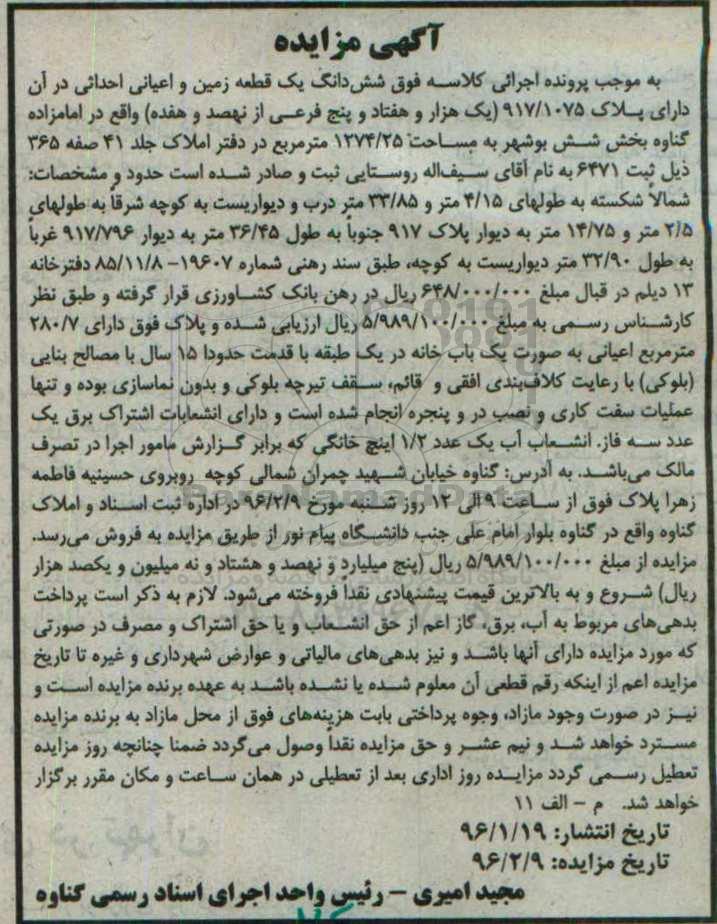 آگهی مزایده
به موجب پرونده اجرائی کلاسه فوق شش‌دانگ یک قطعه زمین و اعیانی احداثی در آن
دارای پلاک ۹۱۷/۱۰۷۵ (یک هزار و هفتاد و پنج فرعی از نهصد و هفده) واقع در امامزاده
گناوه بخش شش بوشهر به مساحت ۱۲۷۴/۲۵ مترمربع در دفتر املاک جلد ۴۱ صفه ۳۶۵
ذیل ثبت ۶۴۷۱ به نام آقای سیف‌اله روستایی ثبت و صادر شده است حدود و مشخصات:
شمالاً شکسته به طولهای ۴/۱۵ متر و ۳۳/۸۵ متر درب و دیواریست به کوچه شرقاً به طولهای
۲/۵ متر و ۱۴/۷۵ متر به دیوار پلاک ۹۱۷ جنوباً به طول ۳۶/۴۵ متر به دیوار ۹۱۷/۷۹۶ غرباً
به طول ۳۲/۹۰ متر دیواریست به کوچه، طبق سند رهنی شماره ۱۹۶۰۷- ۸۵/۱۱/۸ دفترخانه
۱۳ دیلم در قبال مبلغ ۶۴۸/۰۰۰/۰۰۰ ریال در رهن بانک کشاورزی قرار گرفته و طبق نظر
کارشناس رسمی به مبلغ ۵/۹۸۹/۱۰۰/۰۰۰ ریال ارزیابی شده و پلاک فوق دارای ۲۸۰/۷
مترمربع اعیانی به صورت یک باب خانه در یک طبقه با قدمت حدودا ۱۵ سال با مصالح بنایی
(بلوکی) با رعایت کلاف‌بندی افقی و قائم، سقف تیرچه بلوکی و بدون نماسازی بوده و تنها
عملیات سفت کاری و نصب در و پنجره انجام شده است و دارای انشعابات اشتراک برق یک
عدد سه فاز. انشعاب آب یک عدد ۱/۲ اینچ خانگی که برابر گزارش مامور اجرا در تصرف
مالک می‌باشد. به آدرس: گناوه خیابان شهید چمران شمالی کوچه روبروی حسینیه فاطمه
زهرا پلاک فوق از ساعت ۹ الی ۱۲ روز شنبه مورخ ۹۶/۲/۹ در اداره ثبت اسناد و املاک
گناوه واقع در گناوه بلوار امام علی جنب دانشگاه پیام نور از طریق مزایده به فروش می‌رسد.
مزایده از مبلغ ۵/۹۸۹/۱۰۰/۰۰۰ ریال (پنج میلیارد و نهصد و هشتاد و نه میلیون و یکصد هزار
ریال) شروع و به بالاترین قیمت پیشنهادی نقداً فروخته می‌شود. لازم به ذکر است پرداخت
بدهی‌های مربوط به آب، برق، گاز اعم از حق انشعاب و یا حق اشتراک و مصرف در صورتی
که مورد مزایده دارای آنها باشد و نیز بدهی‌های مالیاتی و عوارض شهرداری و غیره تا تاریخ
مزایده اعم از اینکه رقم قطعی آن معلوم شده یا نشده باشد به عهده برنده مزایده است و
نیز در صورت وجود مازاد، وجوه پرداختی بابت هزینه‌های فوق از محل مازاد به برنده مزایده
مسترد خواهد شد و نیم عشر و حق مزایده نقداً وصول می‌گردد ضمنا چنانچه روز مزایده
تعطیل رسمی گردد مزایده روز اداری بعد از تعطیلی در همان ساعت و مکان مقرر برگزار
خواهد شد. م - الف ۱۱
تاریخ انتشار: ۹۶/۱/۱۹
تاریخ مزایده: ۹۶/۲/۹
مجید امیری - رئیس واحد اجرای اسناد رسمی گناوه